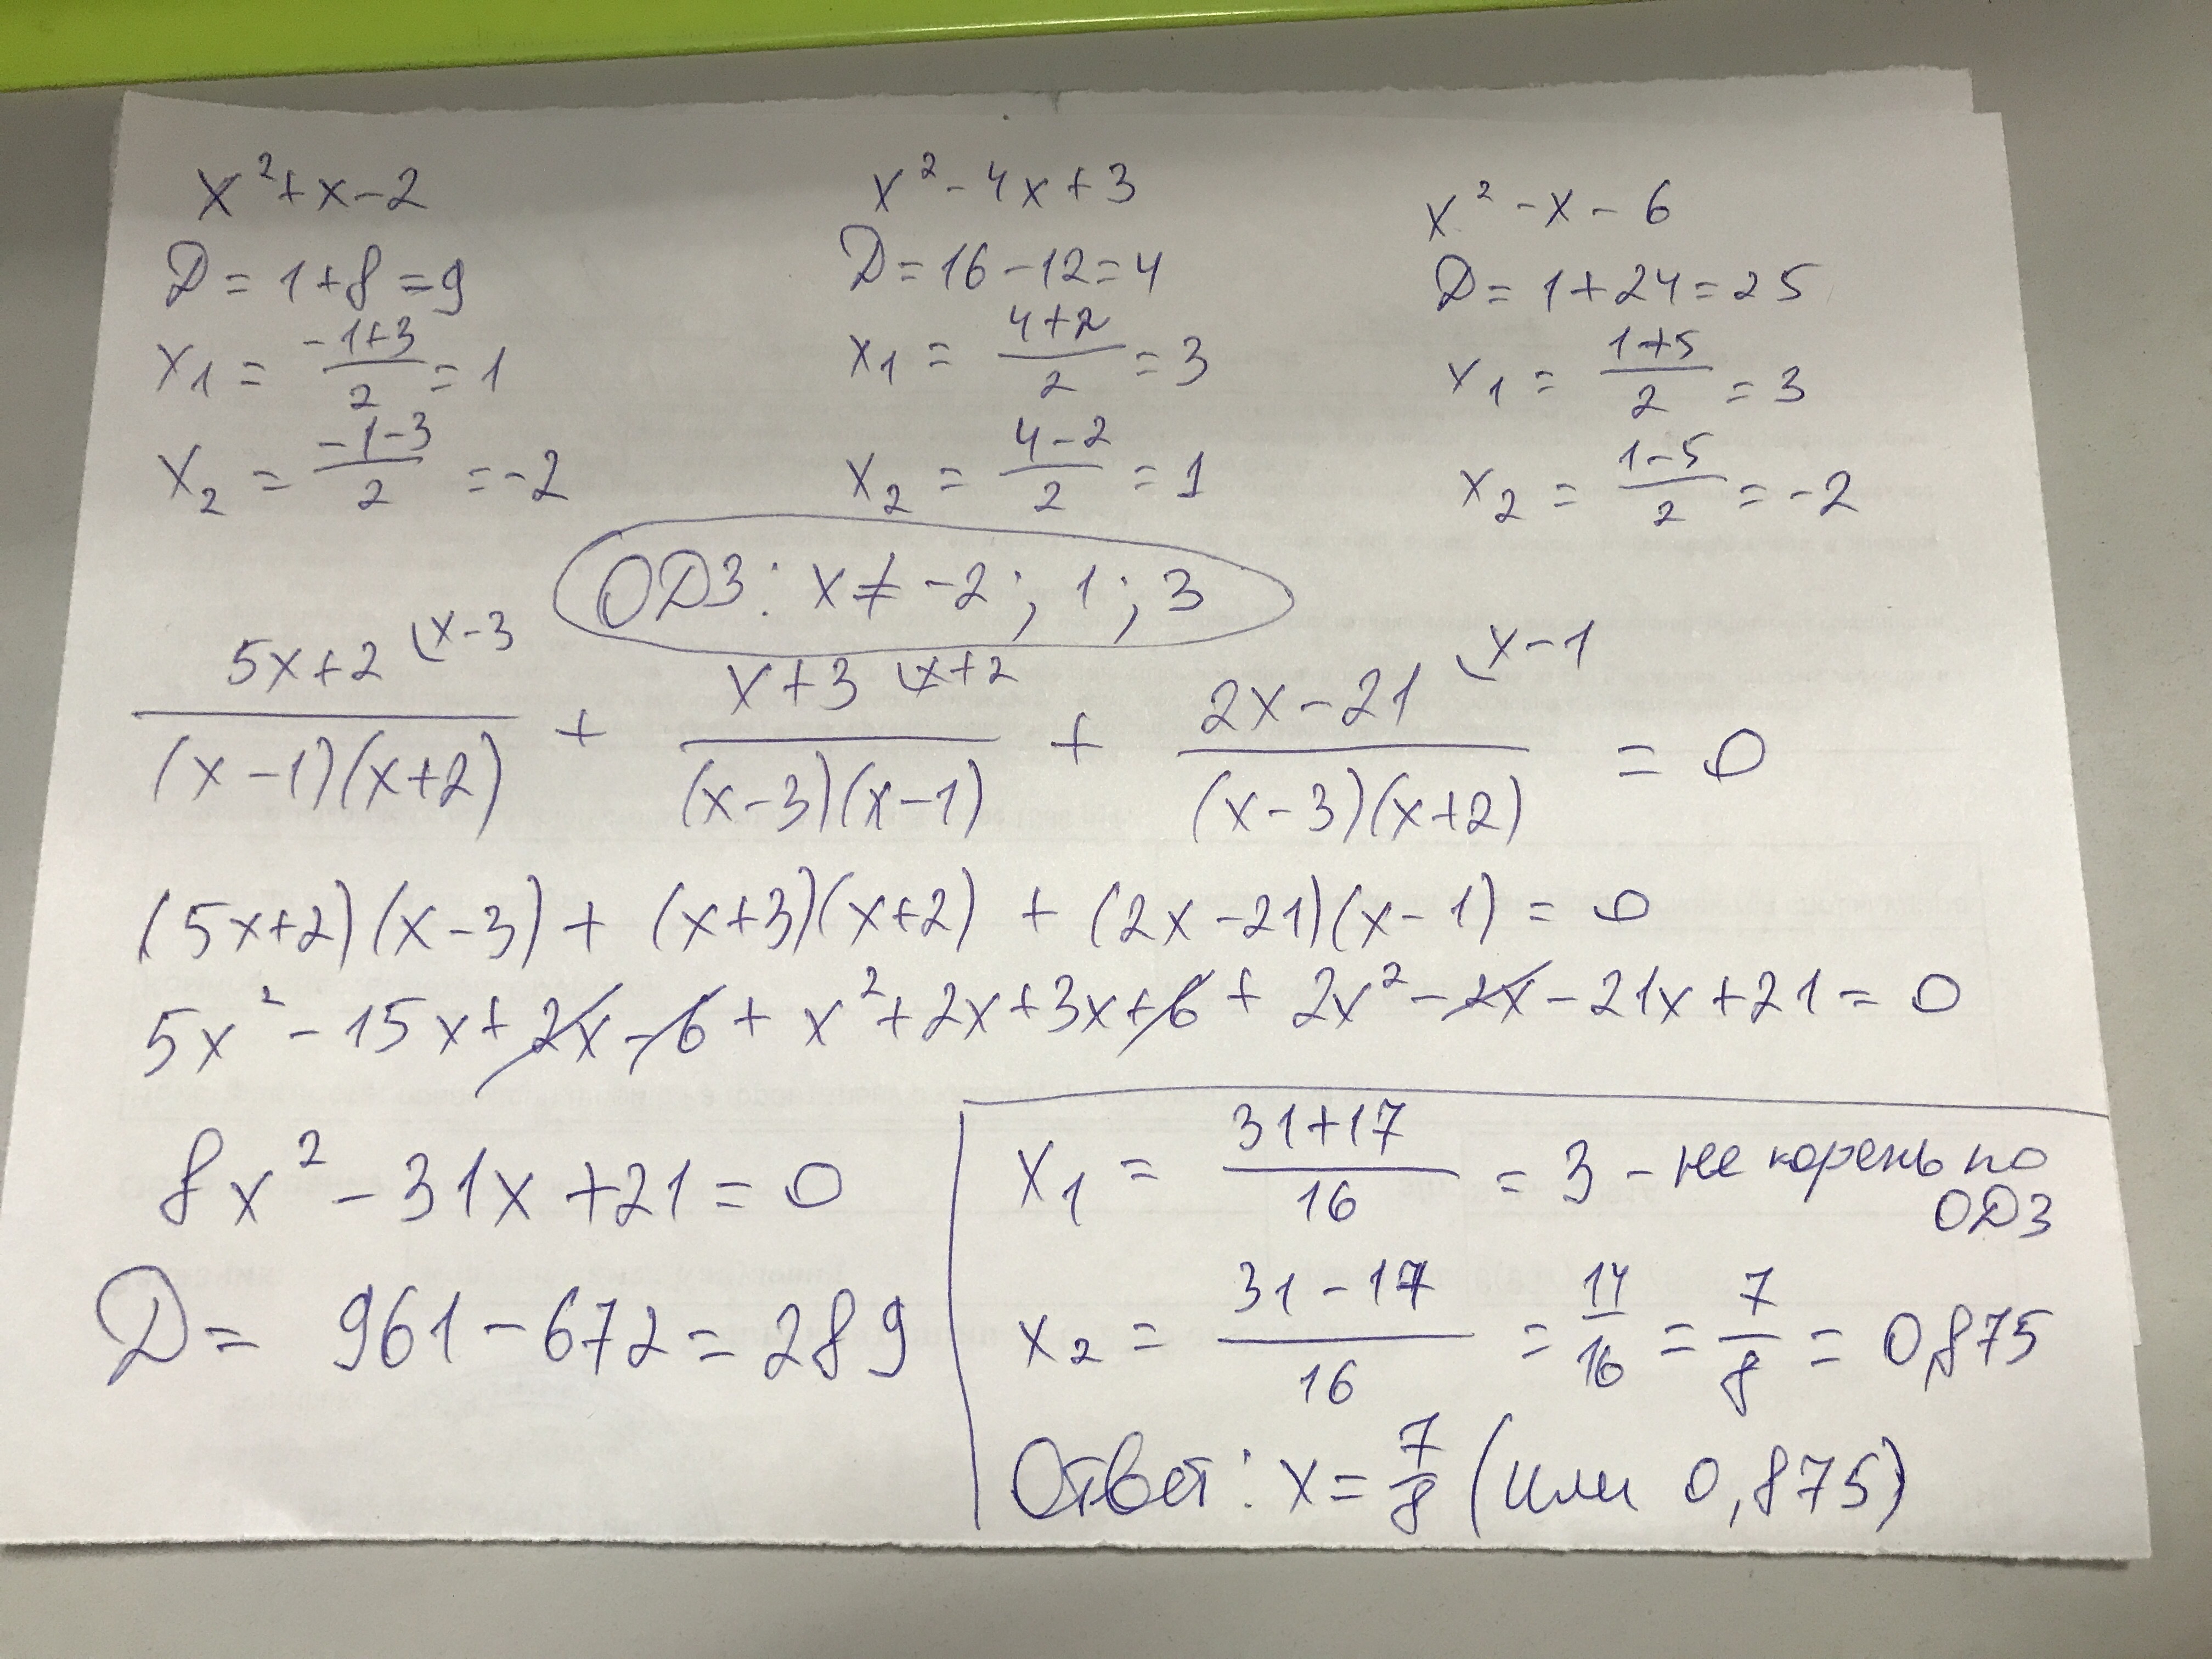 x² + x - 2
D = 1 + 8 = 9
x₁ = (-1+3)/2 = 1
x₂ = (-1-3)/2 = -2
x² - 4x + 3
D = 16 - 12 = 4
x₁ = (4+2)/2 = 3
x₂ = (4-2)/2 = 1
x² - x - 6
D = 1 + 24 = 25
x₁ = (1+5)/2 = 3
x₂ = (1-5)/2 = -2
ОДЗ: x ≠ -2; 1; 3
5x+2 \x-3 / (x-1)(x+2) + x+3 \x+2 / (x-3)(x-1) + 2x-21 \x-1 / (x-3)(x+2) = 0
(5x+2)(x-3) + (x+3)(x+2) + (2x-21)(x-1) = 0
5x² - 15x + 2x - 6 + x² + 2x + 3x + 6 + 2x² - 2x - 21x + 21 = 0
8x² - 31x + 21 = 0
D = 961 - 672 = 289
x₁ = (31+17)/16 = 3 - не корень по
ОДЗ
x₂ = (31-17)/16 = 14/16 = 7/8 = 0,875
Ответ: x = 7/8 (или 0,875)